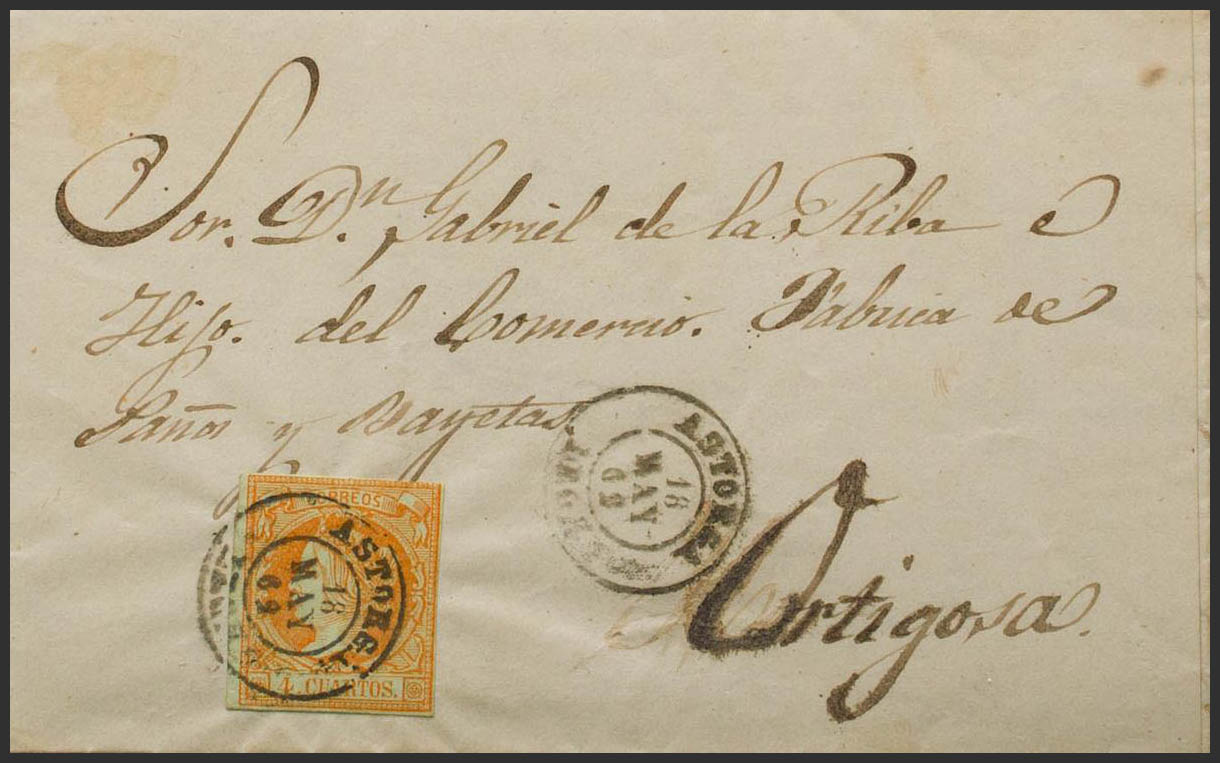 Sor. Dn. Gabriel de la Riba e
Hijo. del Comercio. Fabrica de
Paños y Bayetas.
ASTORGA
18
MAY
63
Ortigosa.
CORREOS
ASTORGA
18
MAY
63
4 CUARTOS.